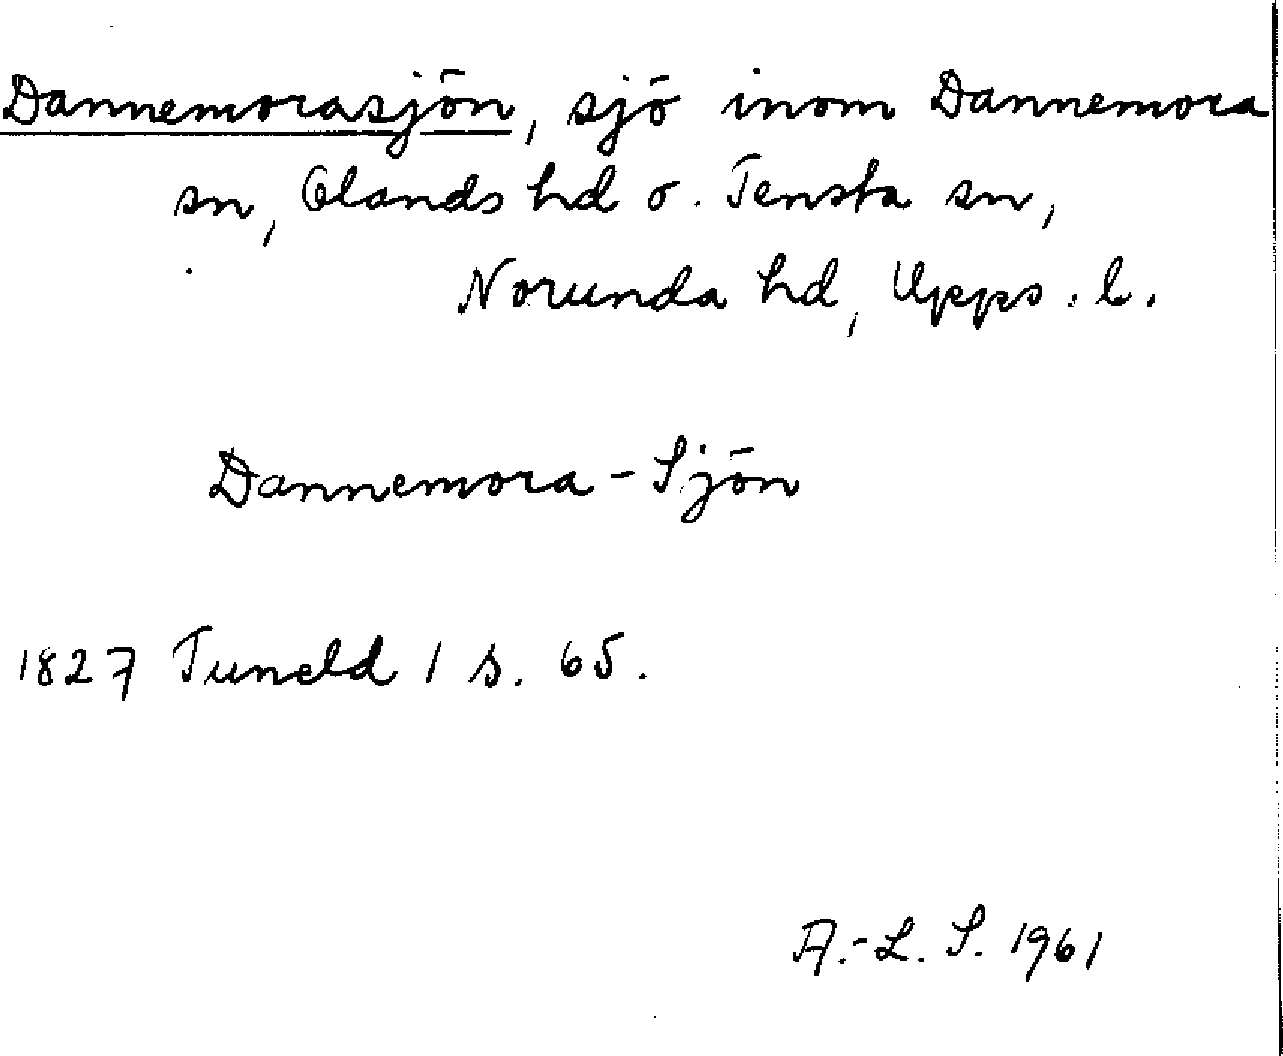 Dannemorasjön, sjö inom Dannemora
sn, Olands hd o. Tensta sn,
Norunda hd, Upps. l.
Dannemora-Sjön
1827 Tuneld 1 s. 65.
A.-L. S. 1961